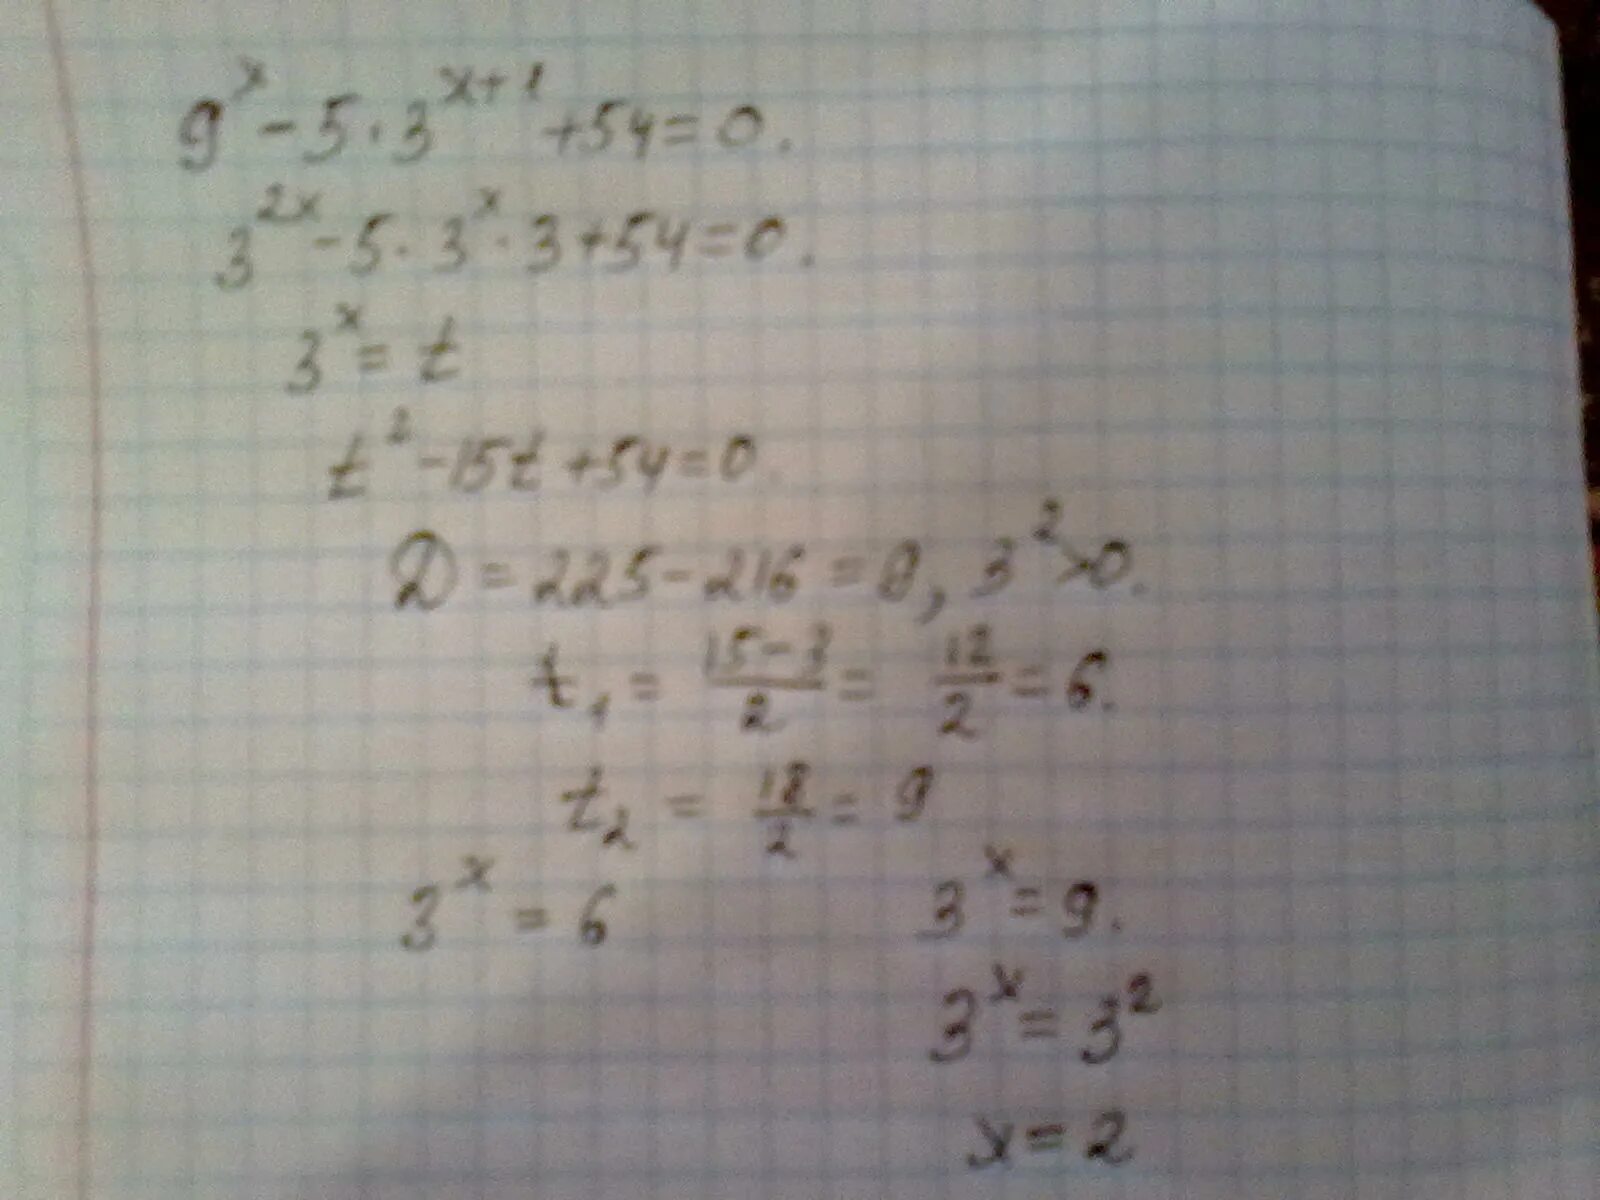 9^x - 5 · 3^{x+1} + 54 = 0.
3^{2x} - 5 · 3^x · 3 + 54 = 0.
3^x = t
t^2 - 15t + 54 = 0.
D = 225 - 216 = 9, 3^2 > 0.
t_1 = \frac{15-3}{2} = \frac{12}{2} = 6.
t_2 = \frac{18}{2} = 9
3^x = 6 3^x = 9.
3^x = 3^2
x = 2